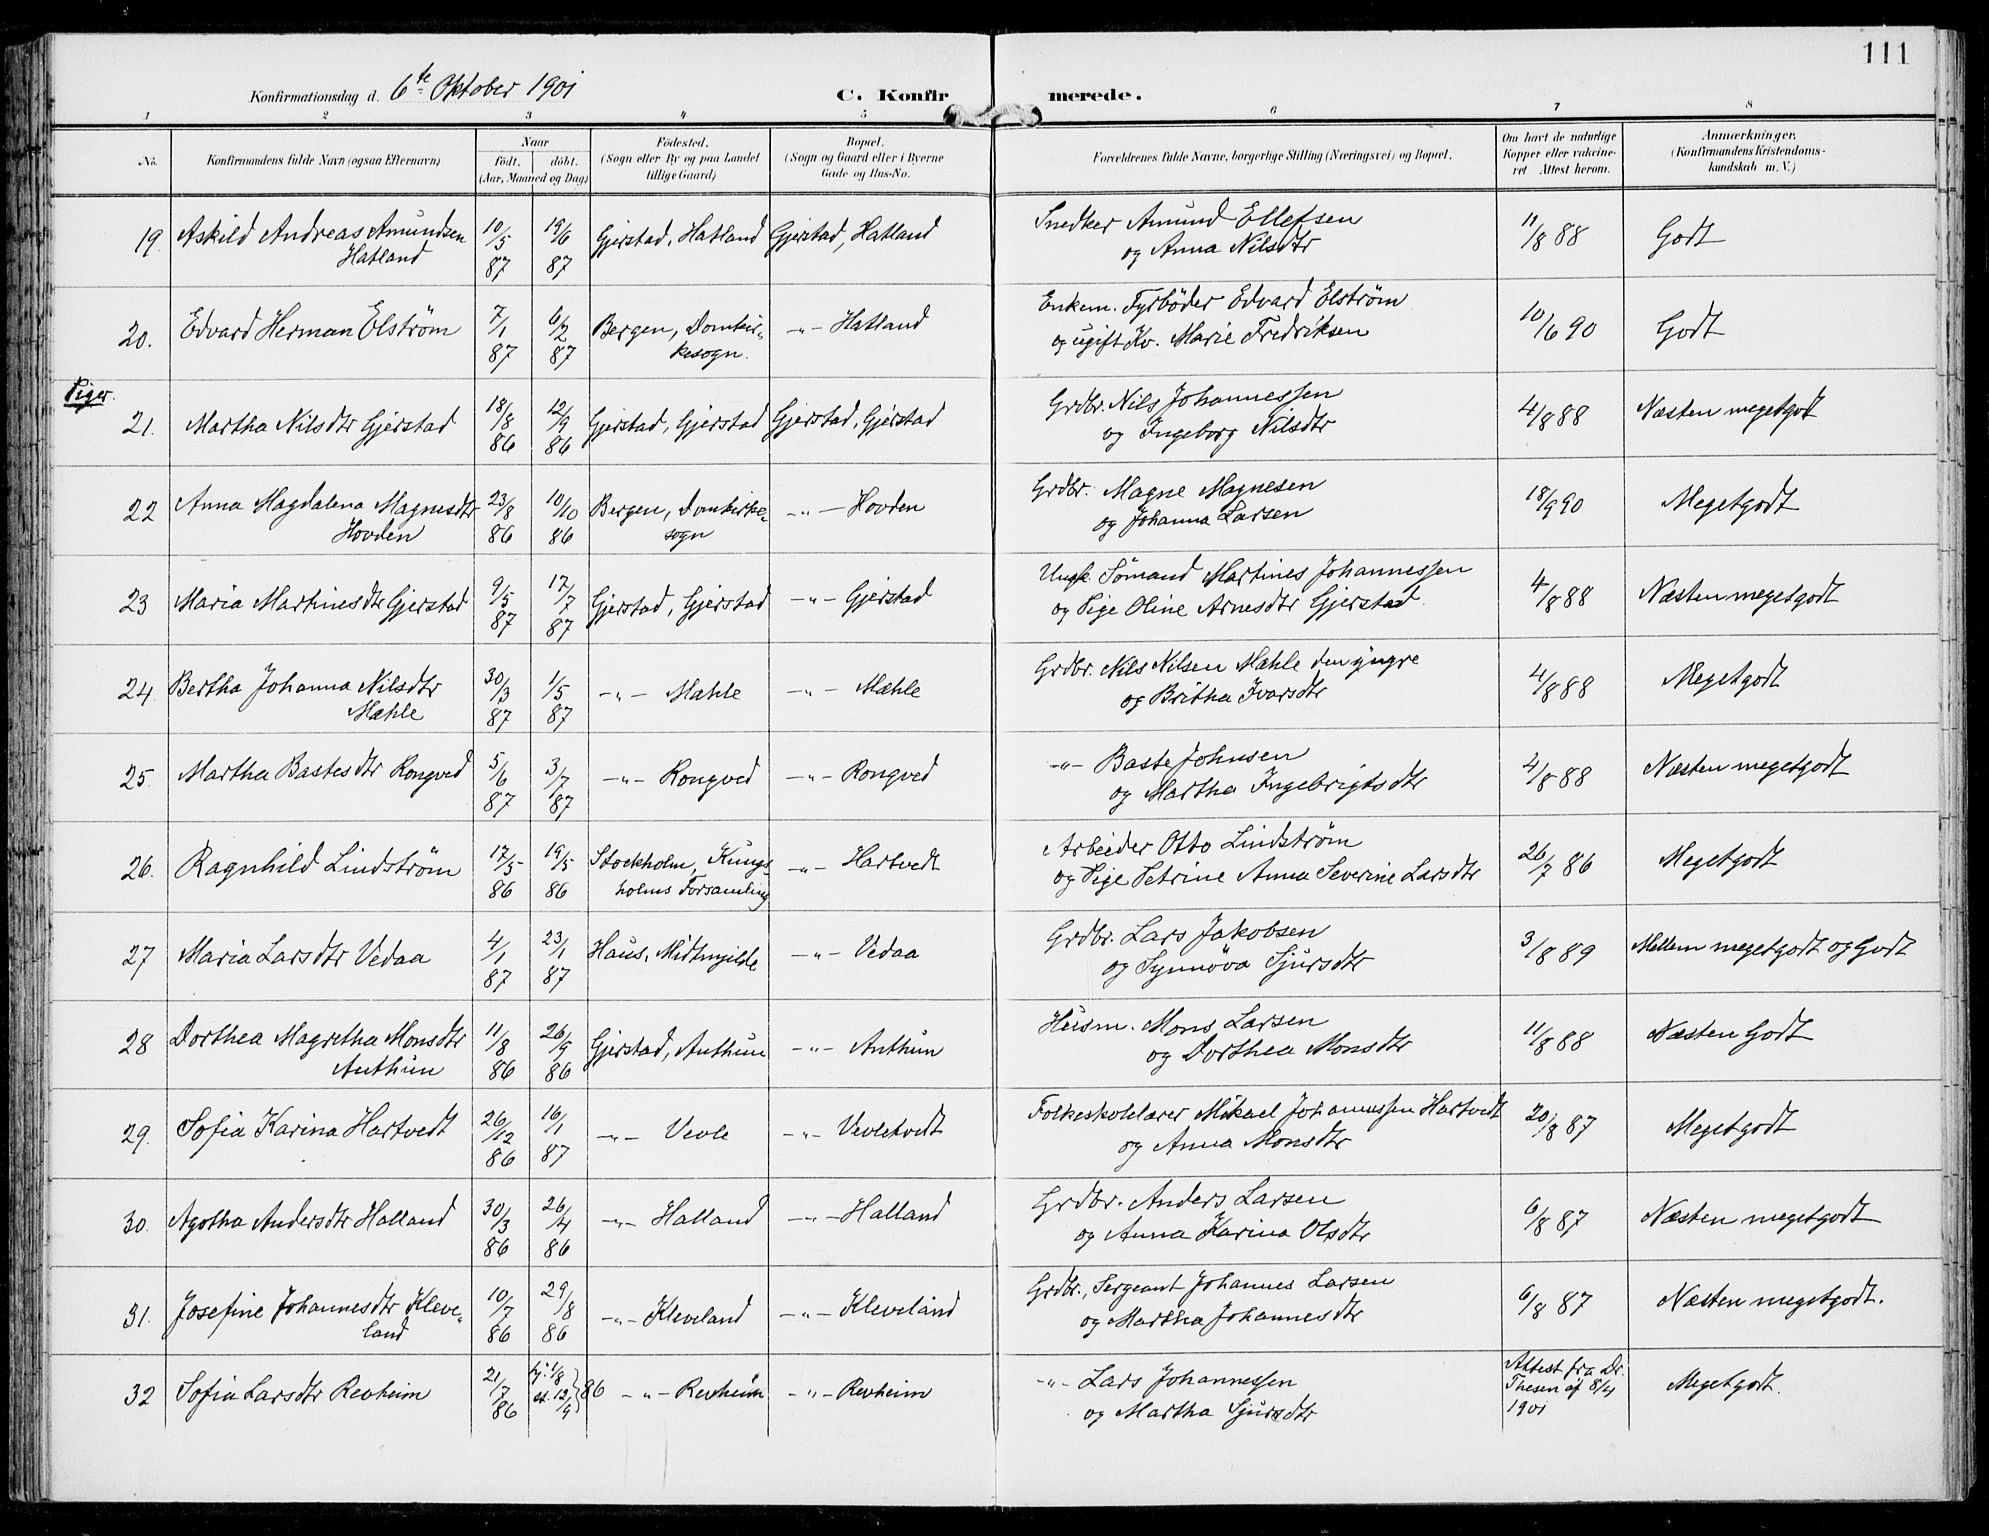 111
Konfirmationsdag d. 6te Oktober 1901
C. Konfirmerede.
1 2 3 4 5 6 7 8
No. | Konfirmandens fulde Navn (ogsaa Efternavn) | Naar födt. döbt. (Aar, Maaned og Dag) | Födested. (Sogn eller By og paa Landet tillige Gaard) | Bopæl. (Sogn og Gaard eller i Byerne Gade og Hus-No. | Forældrenes fulde Navne, borgerlige Stilling (Næringsvei) og Bopæl. | Om havt de naturlige Kopper eller vakcineret Attest herom. | Anmærkninger. (Konfirmandens Kristendomskundskab m. V.)
19. Askild Andreas Amundsen Hatland | 10/5 87 | 19/6 87 | Gjerstad, Hatland | Gjerstad, Hatland | Snedker Amund Ellefsen og Anna Nilsdtr | 11/8 88 | Godt
20. Edvard Herman Elström | 7/1 87 | 6/2 87 | Bergen, Domkirkesogn. | -"- Hatland | Enkem. Fyrböder Edvard Elström og ugift Kv. Marie Fredriksen | 10/6 90 | Godt
Piger.
21. Martha Nilsdtr Gjerstad | 18/8 86 | 12/9 86 | Gjerstad, Gjerstad | Gjerstad, Gjerstad | Grdbr. Nils Johannessen og Ingeborg Nilsdtr | 4/8 88 | Næsten megetgodt
22 Anna Magdalena Magnesdtr Hovden | 23/8 86 | 10/10 86 | Bergen, Domkirkesogn | -"- Hovden | Grdbr. Magne Magnesen og Johanna Larsen | 18/9 90 | Megetgodt
23 Maria Martinesdtr Gjerstad | 9/5 87 | 17/7 87 | Gjerstad, Gjerstad | -"- Gjerstad | Ungk. Sömand Martines Johannessen og Pige Oline Arnesdtr Gjerstad. | 4/8 88 | Næsten megetgodt
24. Bertha Johanna Nilsdtr Mæhle | 30/3 87 | 1/5 87 | -"- Mæhle | -"- Mæhle | Grdbr. Nils Nilsen Mæhle den yngre og Britha Ivarsdtr | 4/8 88 | Megetgodt
25. Martha Bastesdtr Rongved | 5/6 87 | 3/7 87 | -"- Rongved | -"- Rongved | -"- Baste Johnsen og Martha Ingebrigtsdtr | 4/8 88 | Næsten megetgodt
26. Ragnhild Lindström | 17/5 86 | 19/5 86 | Stockholm, Kungsholms Forsamling | -"- Hartvedt | Arbeider Otto Lindström og Pige Petrine Anna Severine Larsdtr | 26/7 86 | Megetgodt
27 Maria Larsdtr Vedaa | 4/1 87 | 23/1 87 | Haus, Midtmjelde | -"- Vedaa | Grdbr. Lars Jakobsen og Synnöva Sjursdtr | 3/8 89 | Mellem megetgodt og Godt
28 Dorthea Magretha Monsdtr Anthun | 11/8 86 | 26/9 86 | Gjerstad, Anthun | -"- Anthun | Husm. Mons Larsen og Dorthea Monsdtr | 11/8 88 | Næsten Godt
29. Sofia Karina Hartvedt | 26/12 86 | 16/1 87 | -"- Vevle | -"- Vevletvedt | Folkeskolelærer Mikael Johannessen Hartvedt og Anna Monsdtr | 20/8 87 | Megetgodt
30. Agotha Andersdtr Halland | 30/3 86 | 26/4 86 | -"- Halland | -"- Halland | Grdbr. Anders Larsen og Anna Karina Olsdtr | 6/8 87 | Næsten megetgodt
31. Josefine Johannesdtr Kleveland | 10/7 86 | 29/8 86 | -"- Kleveland | -"- Kleveland | Grdbr., Sergeant Johannes Larsen og Martha Johannesdtr | 6/8 87 | Næsten megetgodt.
32 Sofia Larsdtr Revheim | 21/7 86 | hj. 1/8 st. 12/9 } 86 | -"- Revheim | -"- Revheim | -"- Lars Johannessen og Martha Sjursdtr | Attest fra Dr. Thesen af 8/4 1901 | Megetgodt.